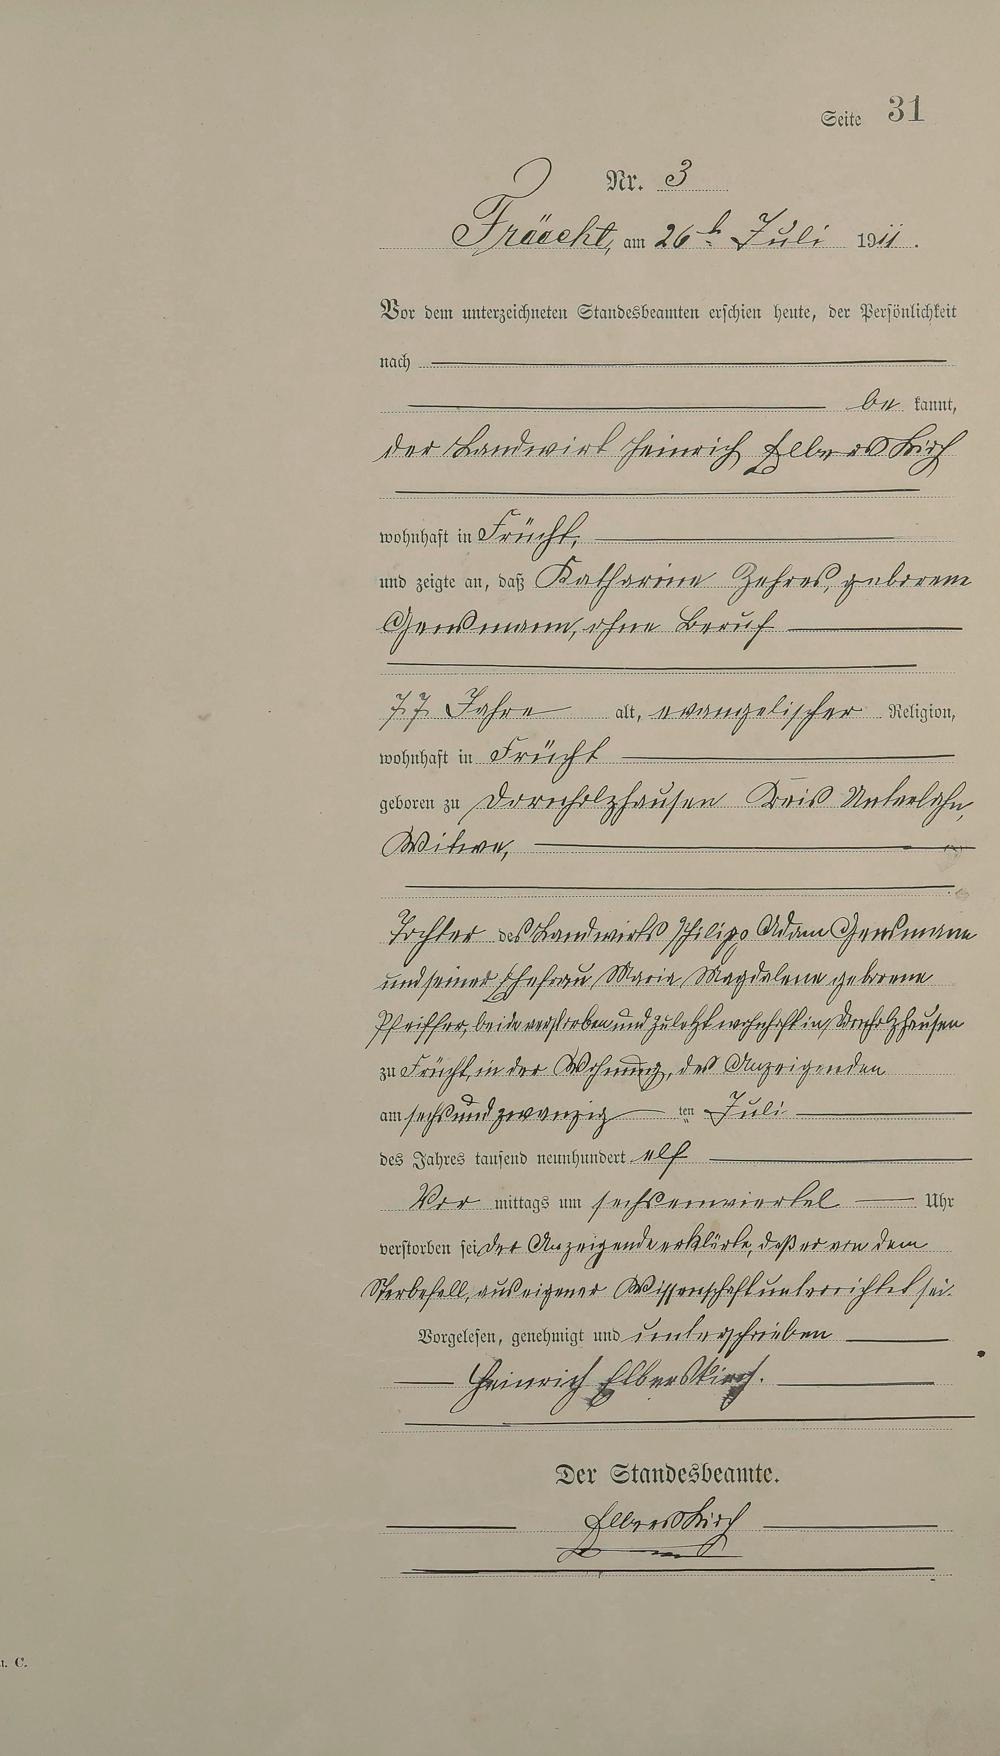 Seite 31
Nr. 3
Frücht, am 26t. Juli 1911.
Vor dem unterzeichneten Standesbeamten erschien heute, der Persönlichkeit
nach
be kannt,
der Landwirt Heinrich Elberskirch
wohnhaft in Frücht,
und zeigte an, daß Katharine Zehres, geborene
Gensmann, ohne Beruf
77 Jahre alt, evangelischer Religion,
wohnhaft in Frücht
geboren zu Dornholzhausen Kreis Unterlahn,
Witwe,
Tochter des Landwirts Philipp Adam Gensmann
und seiner Ehefrau Maria Magdalene geborene
Pfeiffer, beide verstorben und zuletzt wohnhaft in Dornholzhausen
zu Frücht, in der Wohnung, des Anzeigenden
am sechsundzwanzig ten Juli
des Jahres tausend neunhundert elf
Vor mittags um sechseinviertel Uhr
verstorben sei der Anzeigende erklärte, daß er von dem
Sterbefall, aus eigener Wissenschaft unterrichtet sei.
Vorgelesen, genehmigt und unterschrieben
Heinrich Elberskirch.
Der Standesbeamte.
Elberskirch
. C.